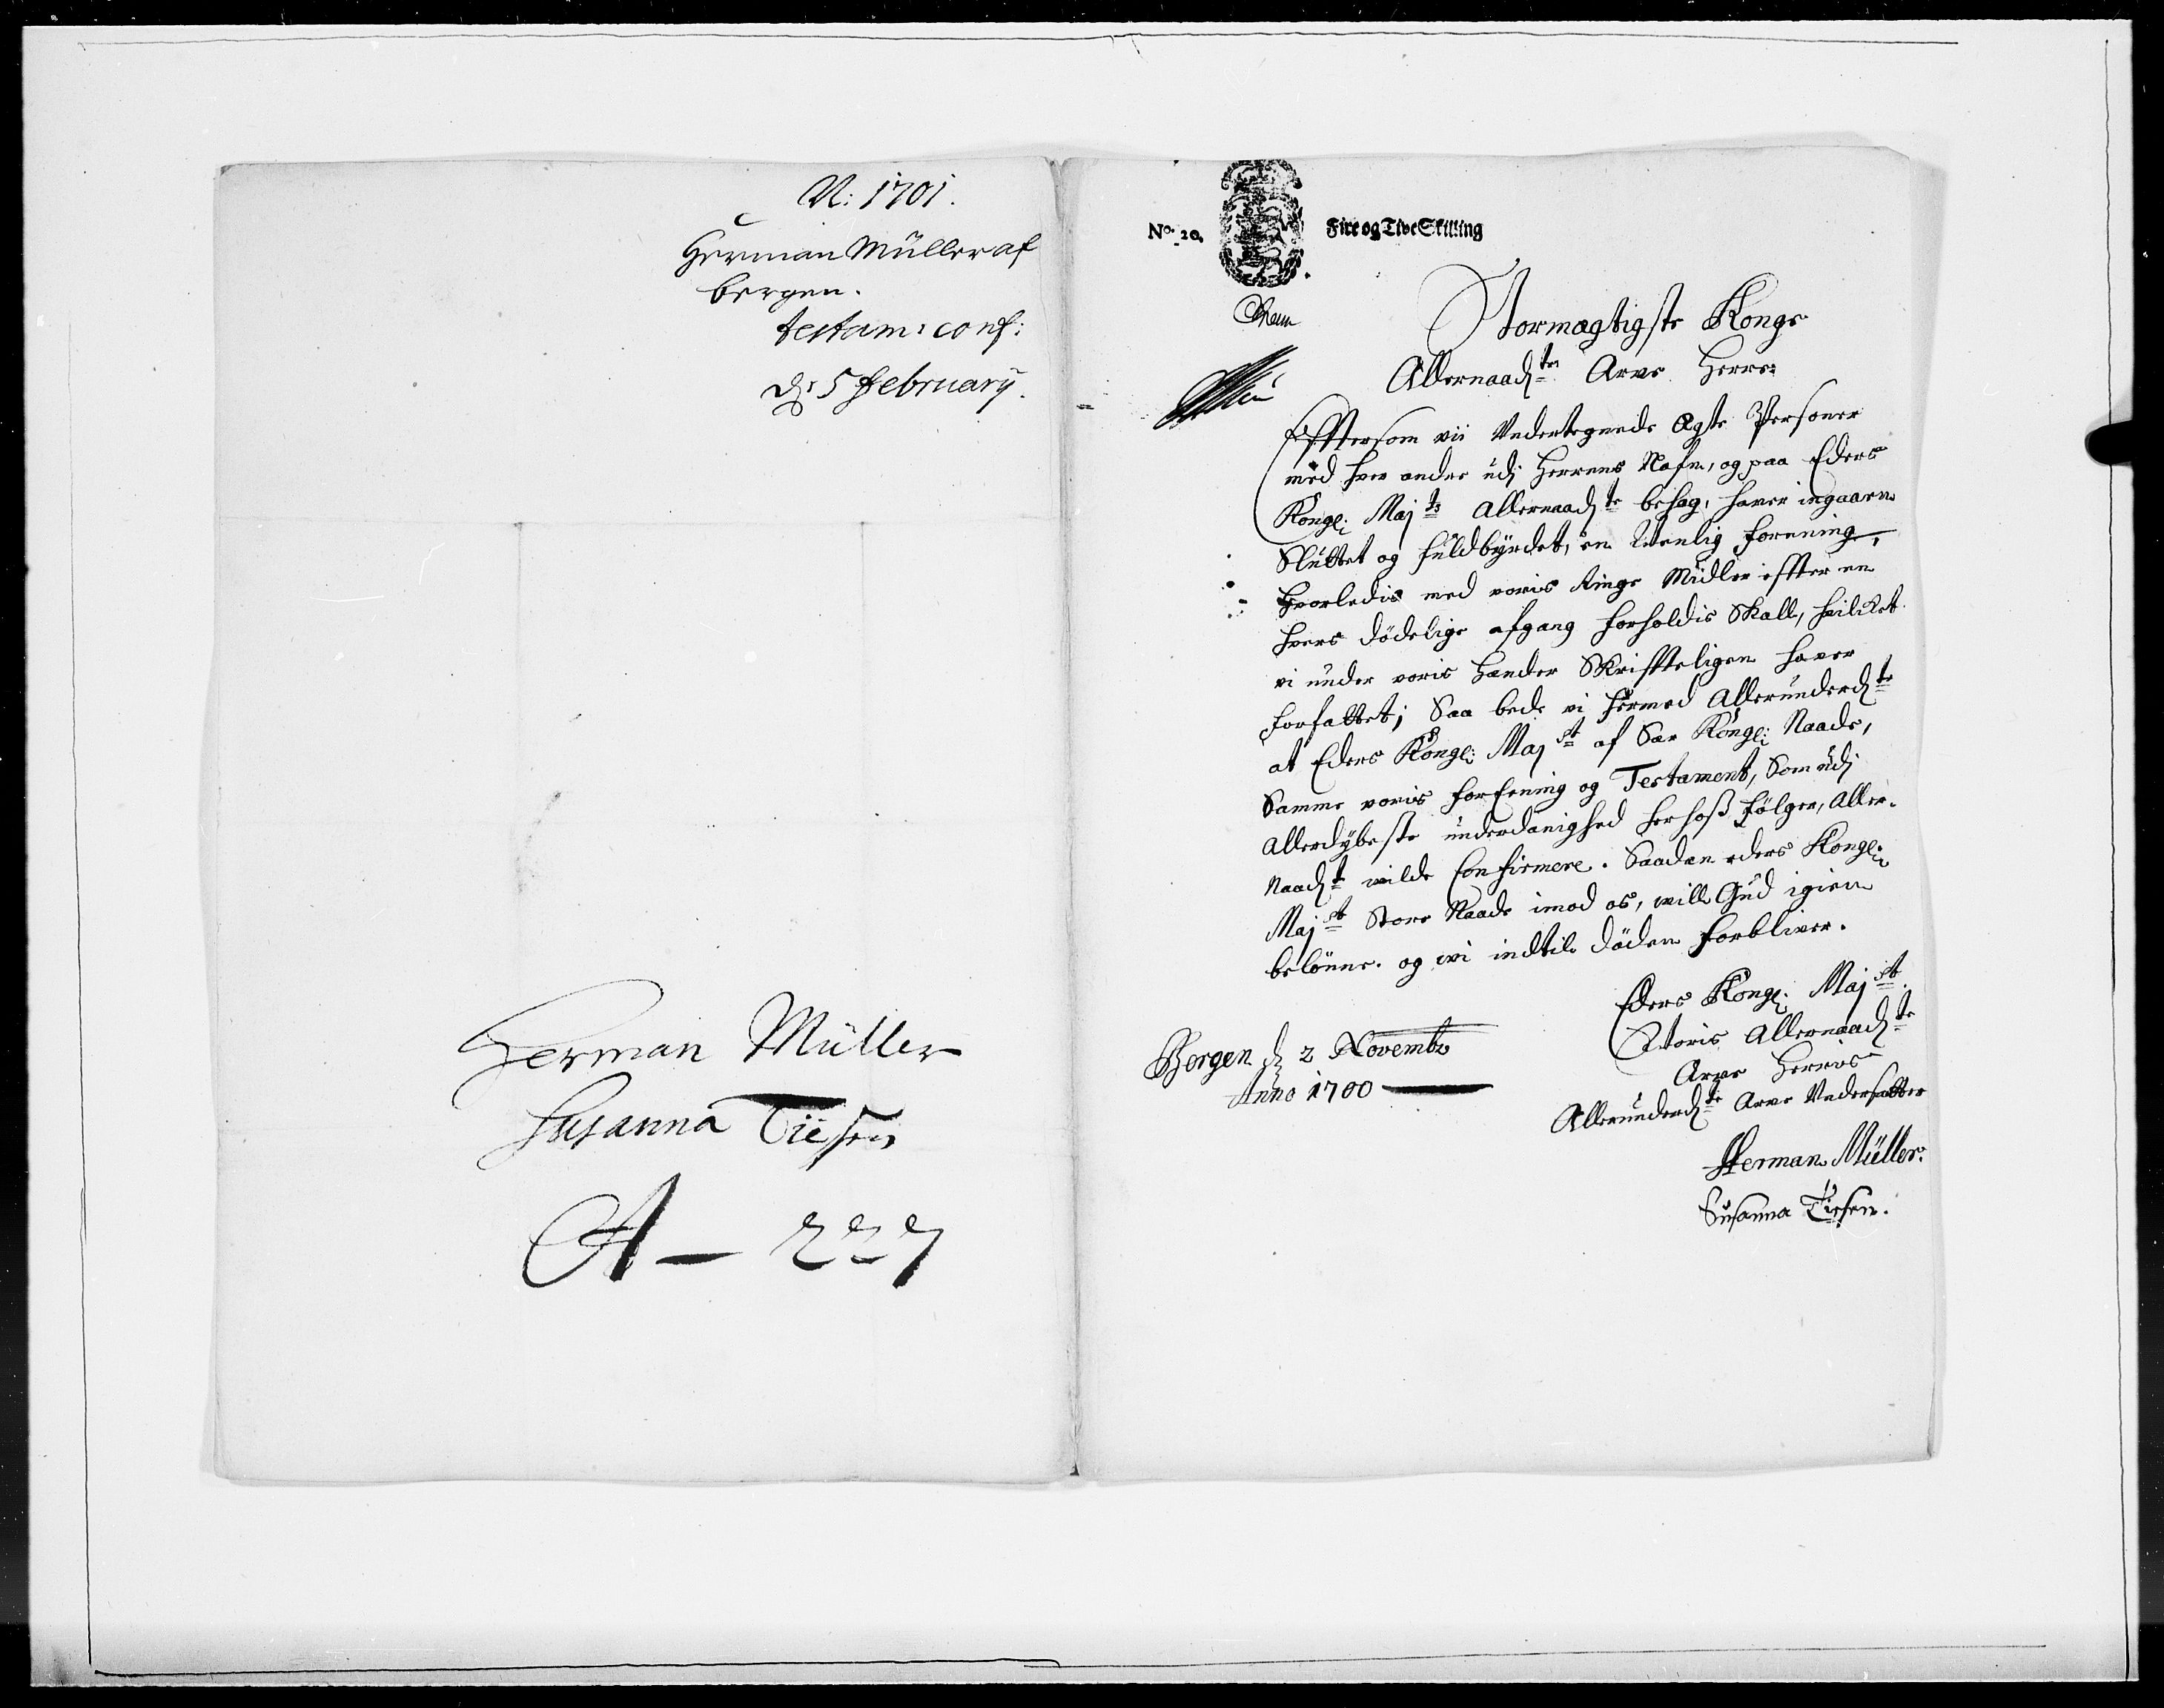 N: 1701.
Herman Müller af
bergen.
testam: conf:
d: 5 february.
Herman Müller
Susanna Tiesen
A — 227
No. 20. Fire og Tive Skilling
Stormægtigste Konge
Allernaadte Arve Herre
Effttersom vii Undertegnede Ægte Personer
med hver andre udj Herrens Nafn, og paa Eders
Kongl: Majts Allernaadte behag, haver ingaaen
Sluttet og fuldbyrdet, en Venlig forening,
hvorledis med voris Ringe Midler effter en
hvers dödelige afgang forholdis Skall, hvilcket
vi under voris Hænder Skrifftteligen haver
forfattet; Saa bede vi hermed Allerunderdte
at Eders Kongl: Majst af Sær Kongl: Naade,
Samme voris forEening og Testament, Som udj
allerdybeste underdanighed herhoß fölger, Aller-
Naadt wilde Confirmere. Saadan eders Kongl:
Majst Store Naade imod os, will Gud igien
belönne. og wi indtil döden forbliver.
Eders Kongl: Majst
Voris Allernaadte
Arve Herris
Allerunderdte Arve Undersatter
Bergen d 2 Novembr
Anno 1700
Herman Müller.
Susanna Tiesen.